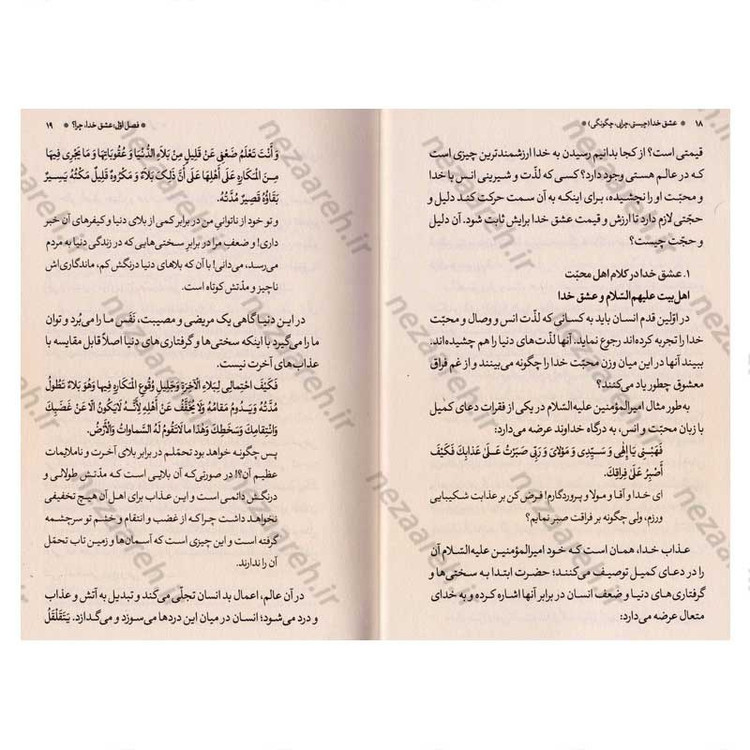 ۱۸ * عشق خدا (چیستی، چرایی، چگونگی) *
قیمتی است؟ از کجا بدانیم رسیدن به خدا ارزشمندترین چیزی است
که در عالم هستی وجود دارد؟ کسی که لذّت و شیرینی انس با خدا
و محبّت او را نچشیده، برای اینکه به آن سمت حرکت کند دلیل و
حجّتی لازم دارد تا ارزش و قیمت عشق خدا برایش ثابت شود. آن دلیل
و حجّت چیست؟
۱. عشق خدا در کلام اهل محبّت
اهل‌بیت علیهم السّلام و عشق خدا
در اوّلین قدم انسان باید به کسانی که لذّت انس و وصال و محبّت
خدا را تجربه کرده‌اند رجوع نماید. آنها لذّت‌های دنیا را هم چشیده‌اند.
ببیند آنها در این میان وزن محبّت خدا را چگونه می‌بینند و از غم فراق
معشوق چطور یاد می‌کنند؟
به‌طور مثال امیرالمؤمنین علیه‌السّلام در یکی از فقرات دعای کمیل
با زبان محبّت و انس، به درگاه خداوند عرضه می‌دارد:
فَهَبْنی یَا إِلٰهی وَ سَیِّدِی وَ مَوْلایَ وَ رَبّی صَبَرْتُ عَلیٰ عَذابِکَ فَکَیْفَ
أَصْبِرُ عَلیٰ فِراقِکَ.
ای خدا و آقا و مولا و پروردگارم! فرض کن بر عذابت شکیبایی
ورزم، ولی چگونه بر فراقت صبر نمایم؟
عذاب خدا، همان است که خود امیرالمؤمنین علیه‌السّلام آن
را در دعای کمیل توصیف می‌کنند؛ حضرت ابتدا به سختی‌ها و
گرفتاری‌های دنیا و ضعف انسان در برابر آنها اشاره کرده و به خدای
متعال عرضه می‌دارد:
* فصل اوّل: عشق خدا، چرا؟ * ۱۹
وَ أَنْتَ تَعْلَمُ ضَعْفی عَنْ قَلیلٍ مِنْ بَلاءِ الدُّنْیَا وَ عُقُوبَاتِهَا وَ مَا یَجْری فیهَا
مِنَ الْمَکَارِهِ عَلیٰ أَهْلِهَا عَلیٰ أَنَّ ذٰلِکَ بَلاءٌ وَ مَکْرُوهٌ قَلیلٌ مَکْثُهُ یَسیرٌ
بَقَاؤُهُ قَصیرٌ مُدَّتُهُ.
و تو خود از ناتوانی من در برابر کمی از بلای دنیا و کیفرهای آن خبر
داری! و ضعف مرا در برابر سختی‌هایی که در زندگی دنیا به مردم
می‌رسد، می‌دانی! با آن که بلاهای دنیا درنگش کم، ماندگاری‌اش
ناچیز و مدّتش کوتاه است.
در این دنیا گاهی یک مریضی و مصیبت، نَفَس ما را می‌بُرد و توان
ما را می‌گیرد با اینکه سختی‌ها و گرفتاری‌های دنیا اصلاً قابل مقایسه با
عذاب‌های آخرت نیست.
فَکَیْفَ احْتِمَالی لِبَلاءِ الْآخِرَةِ وَ جَلیلِ وُقُوعِ الْمَکَارِهِ فیهَا وَ هُوَ بَلاءٌ تَطُولُ
مُدَّتُهُ وَ یَدُومُ مَقَامُهُ وَ لَا یُخَفَّفُ عَنْ أَهْلِهِ لِأَنَّهُ لَا یَکُونُ إِلَّا عَنْ غَضَبِکَ
وَ انْتِقَامِکَ وَ سَخَطِکَ وَ هٰذَا مَا لَا تَقُومُ لَهُ السَّمَاوَاتُ وَ الْأَرْضُ.
پس چگونه خواهد بود تحمّلم در برابر بلای آخرت و ناملایمات
عظیم آن؟! در صورتی‌که آن بلایی است که مدّتش طولانی و
درنگش دائمی است و این عذاب برای اهل آن هیچ تخفیفی
نخواهد داشت چرا که از غضب و انتقام و خشم تو سرچشمه
گرفته است و این چیزی است که آسمان‌ها و زمین تاب تحمّل
آن را ندارند.
در آن عالم، اعمال بد انسان تجلّی می‌کند و تبدیل به آتش و عذاب
و درد می‌شود؛ انسان در میان این دردها می‌سوزد و می‌گدازد. یَتَقَلْقَلُ
nezaareh.ir
nezaareh.ir
nezaareh.ir
nezaareh.ir
nezaareh.ir
nezaareh.ir